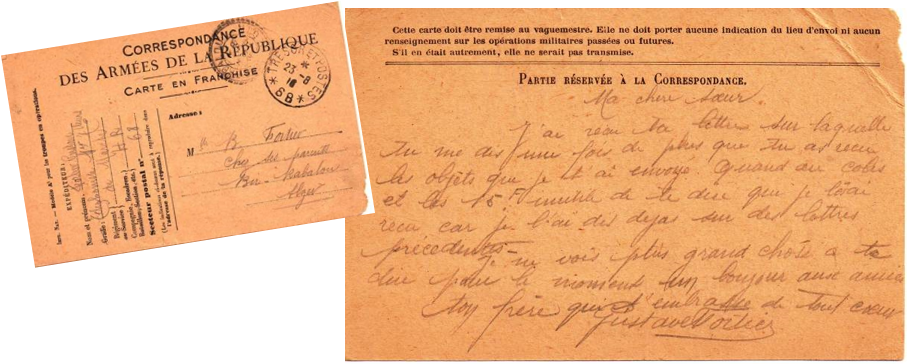 CORRESPONDANCE
DES ARMÉES DE LA RÉPUBLIQUE
CARTE EN FRANCHISE
TRESOR ET POSTES
23 -8
16
* 68 *
Adresse :
M lle B. Fortier
Chez des parents
Alger
EXPÉDITEUR :
Nom et prénoms
Grade :
Régiment
Secteur postal n° 68
Cette carte doit être remise au vaguemestre. Elle ne doit porter aucune indication du lieu d'envoi ni aucun
renseignement sur les opérations militaires passées ou futures.
S'il en était autrement, elle ne serait pas transmise.
PARTIE RÉSERVÉE À LA CORRESPONDANCE.
Ma chere Sœur.
J'ai recu ta lettre sur laquelle
tu me dis une fois de plus que tu as recu
les objets que je t'ai envoyé. Quand au colis
et les 15 F inutile de te dire que je l'ai
recu car je l'ai des dejas sur des lettres
précédentes
Je ne vois plus grand chose a te
dire pour le moment un bonjour aux amies
ton frère qui t'embrasse de tout cœur
Gustave Fortier